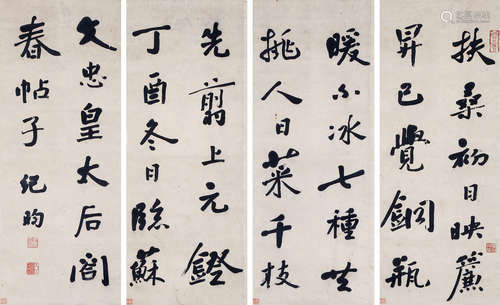 扶桑初日映簾
昇已覺銅瓶
暖不冰七種共
挑人日菜千枝
先翦上元鐙
丁酉冬日臨蘇
文忠皇太后閣
春帖子 紀昀